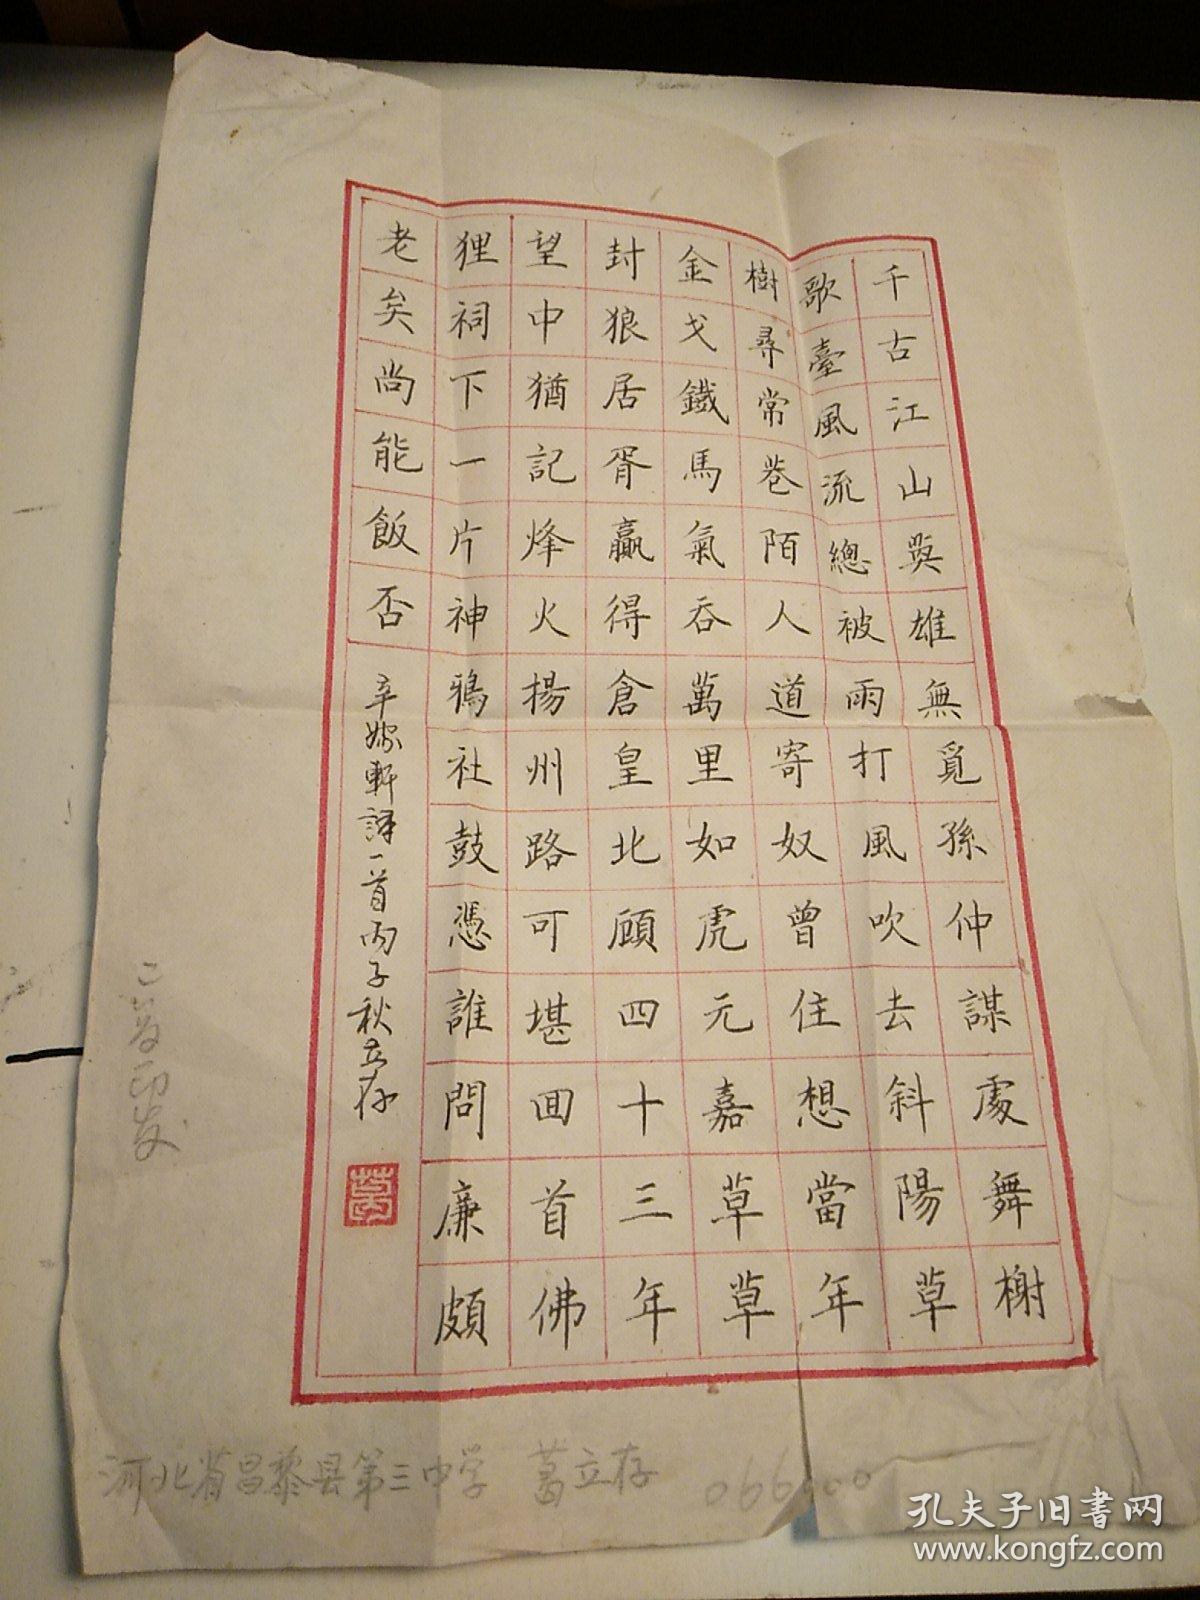 千古江山英雄無覓孫仲謀處舞榭
歌臺風流總被雨打風吹去斜陽草
樹尋常巷陌人道寄奴曾住想當年
金戈鐵馬氣吞萬里如虎元嘉草草
封狼居胥贏得倉皇北顧四十三年
望中猶記烽火揚州路可堪回首佛
狸祠下一片神鴉社鼓憑誰問廉頗
老矣尚能飯否
辛稼軒詞一首丙子秋立存
河北省昌黎县第三中学 葛立存 066600
孔夫子旧书网
www.kongfz.com